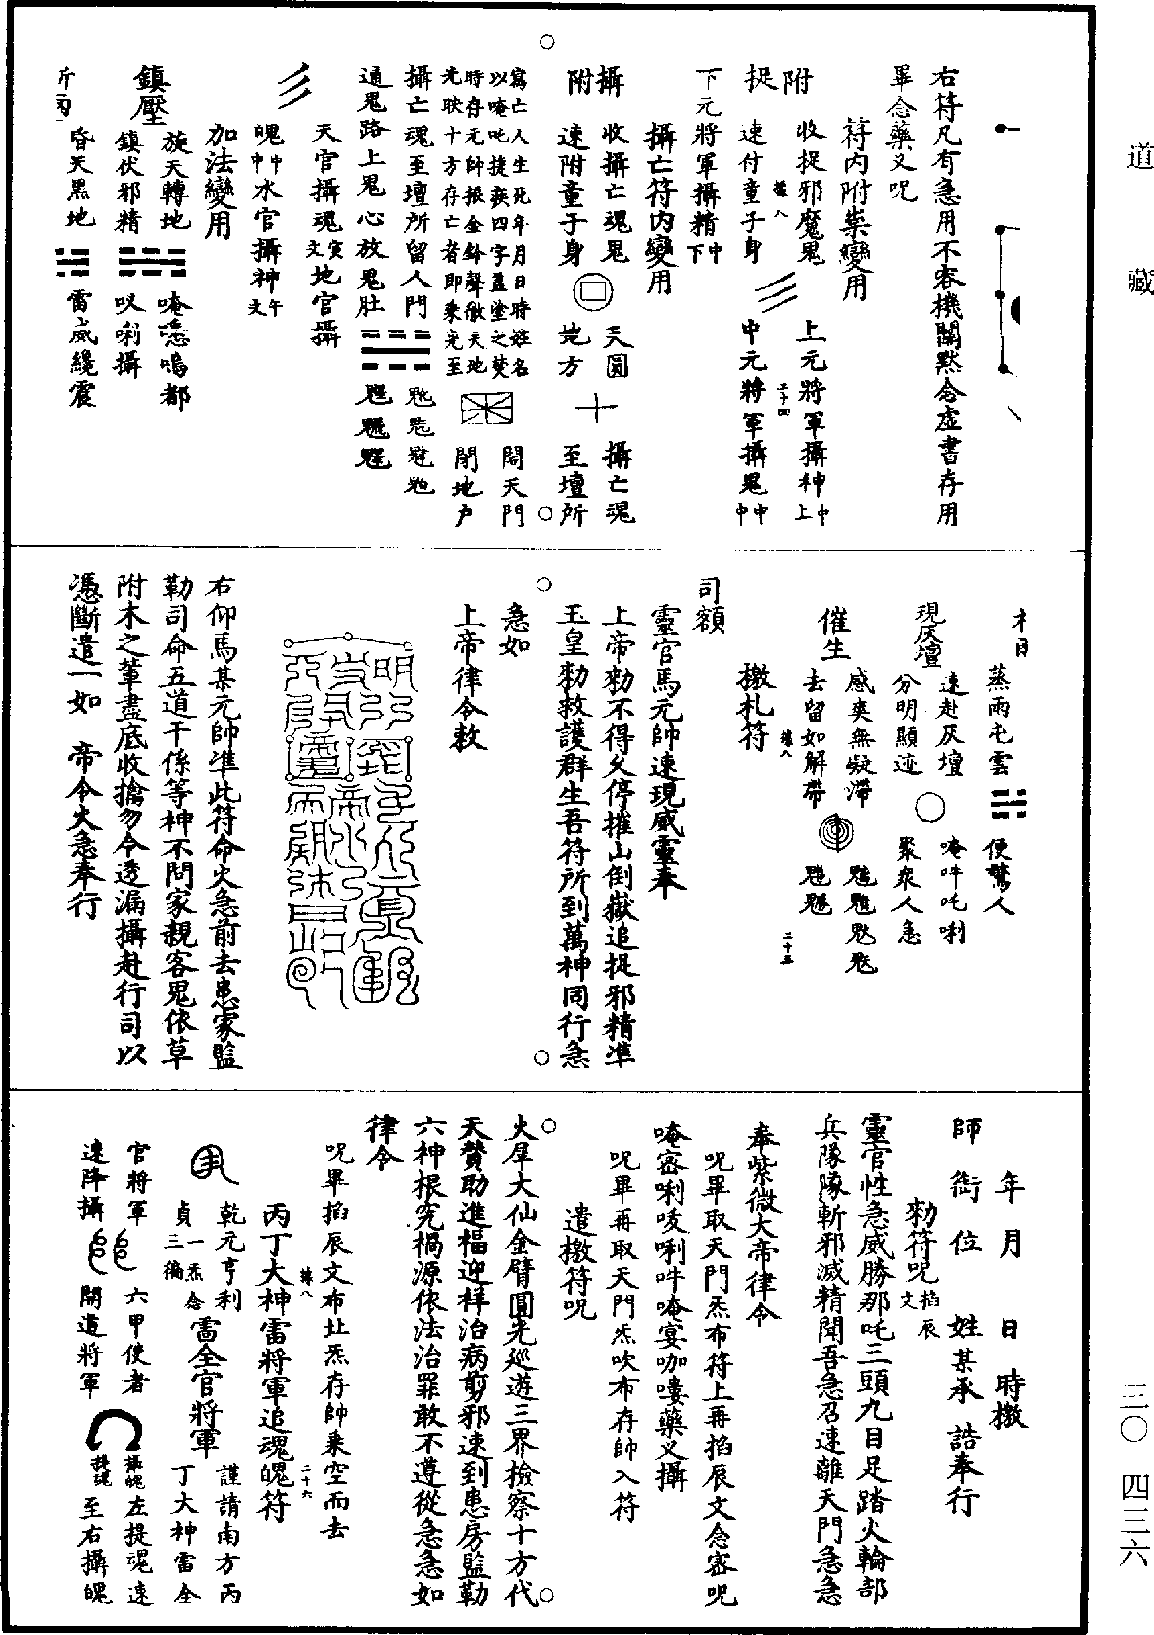 道藏
三〇 四三六
右符凡有急用不容機關黙念虛書存用
畢念藥叉呪
符内附祟變用
附捉
收捉邪魔鬼
速付童子身
上元將軍攝神中上
中元將軍攝鬼中中
下元將軍攝精中下
攝亡符内變用
攝附
收攝亡魂鬼
速附童子身
天圓
地方
攝亡魂
至壇所
寫亡人生死年月日時姓名
以唵吒捷疾四字蓋塗之焚
時存元帥振金鈴聲徹天地
光映十方存亡者即乘光至
開天門
閉地戶
攝亡魂至壇所留人門
通鬼路上鬼心放鬼肚
天官攝魂寅文地官攝
魄中中水官攝神午文
加法變用
鎮壓
旋天轉地
鎮伏邪精
唵
嗚都
叹唎攝
昏天黑地
雷威纔震
蒸雨屯雲
便驚人
現仄壇
速赴仄壇
分明顯迹
唵吽吒唎
聚衆人急
催生
感奏無疑滯
去留如解帶
二十五
檄札符
司額
靈官馬元帥速現威靈奉
上帝勑不得久停摧山倒嶽追捉邪精準
玉皇勑救護群生吾符所到萬神同行急
急如
上帝律令敕
右仰馬某元帥准此符命火急前去患家監
勒司命五道干係等神不問家親客鬼依草
附木之輩盡底收擒勿令透漏攝赴行司以
憑斷遣一如 帝令火急奉行
年 月 日 時檄
師 銜 位 姓某承 誥奉行
勑符呪掐辰文
靈官性急威勝那吒三頭九目足踏火輪部
兵隊隊斬邪滅精聞吾急召速離天門急急
奉紫微大帝律令
呪畢取天門炁布符上再掐辰文念密呪
唵密唎唛唎吽唵宴咖嘍藥叉攝
呪畢再取天門炁吹布存帥入符
遣檄符呪
火犀大仙金臂圓光巡遊三界檢察十方代
天贊助進福迎祥治病剪邪速到患房監勒
六神根究禍源依法治罪敢不遵從急急如
律令
呪畢掐辰文布㘨炁存帥乘空而去
二十六
丙丁大神雷將軍追魂魄符
乾元亨利
貞一炁念三徧
雷全官將軍
謹請南方丙
丁大神雷全
官將軍
速降攝
六甲使者
開道將軍
攝魄
左提魂速
至右攝魄